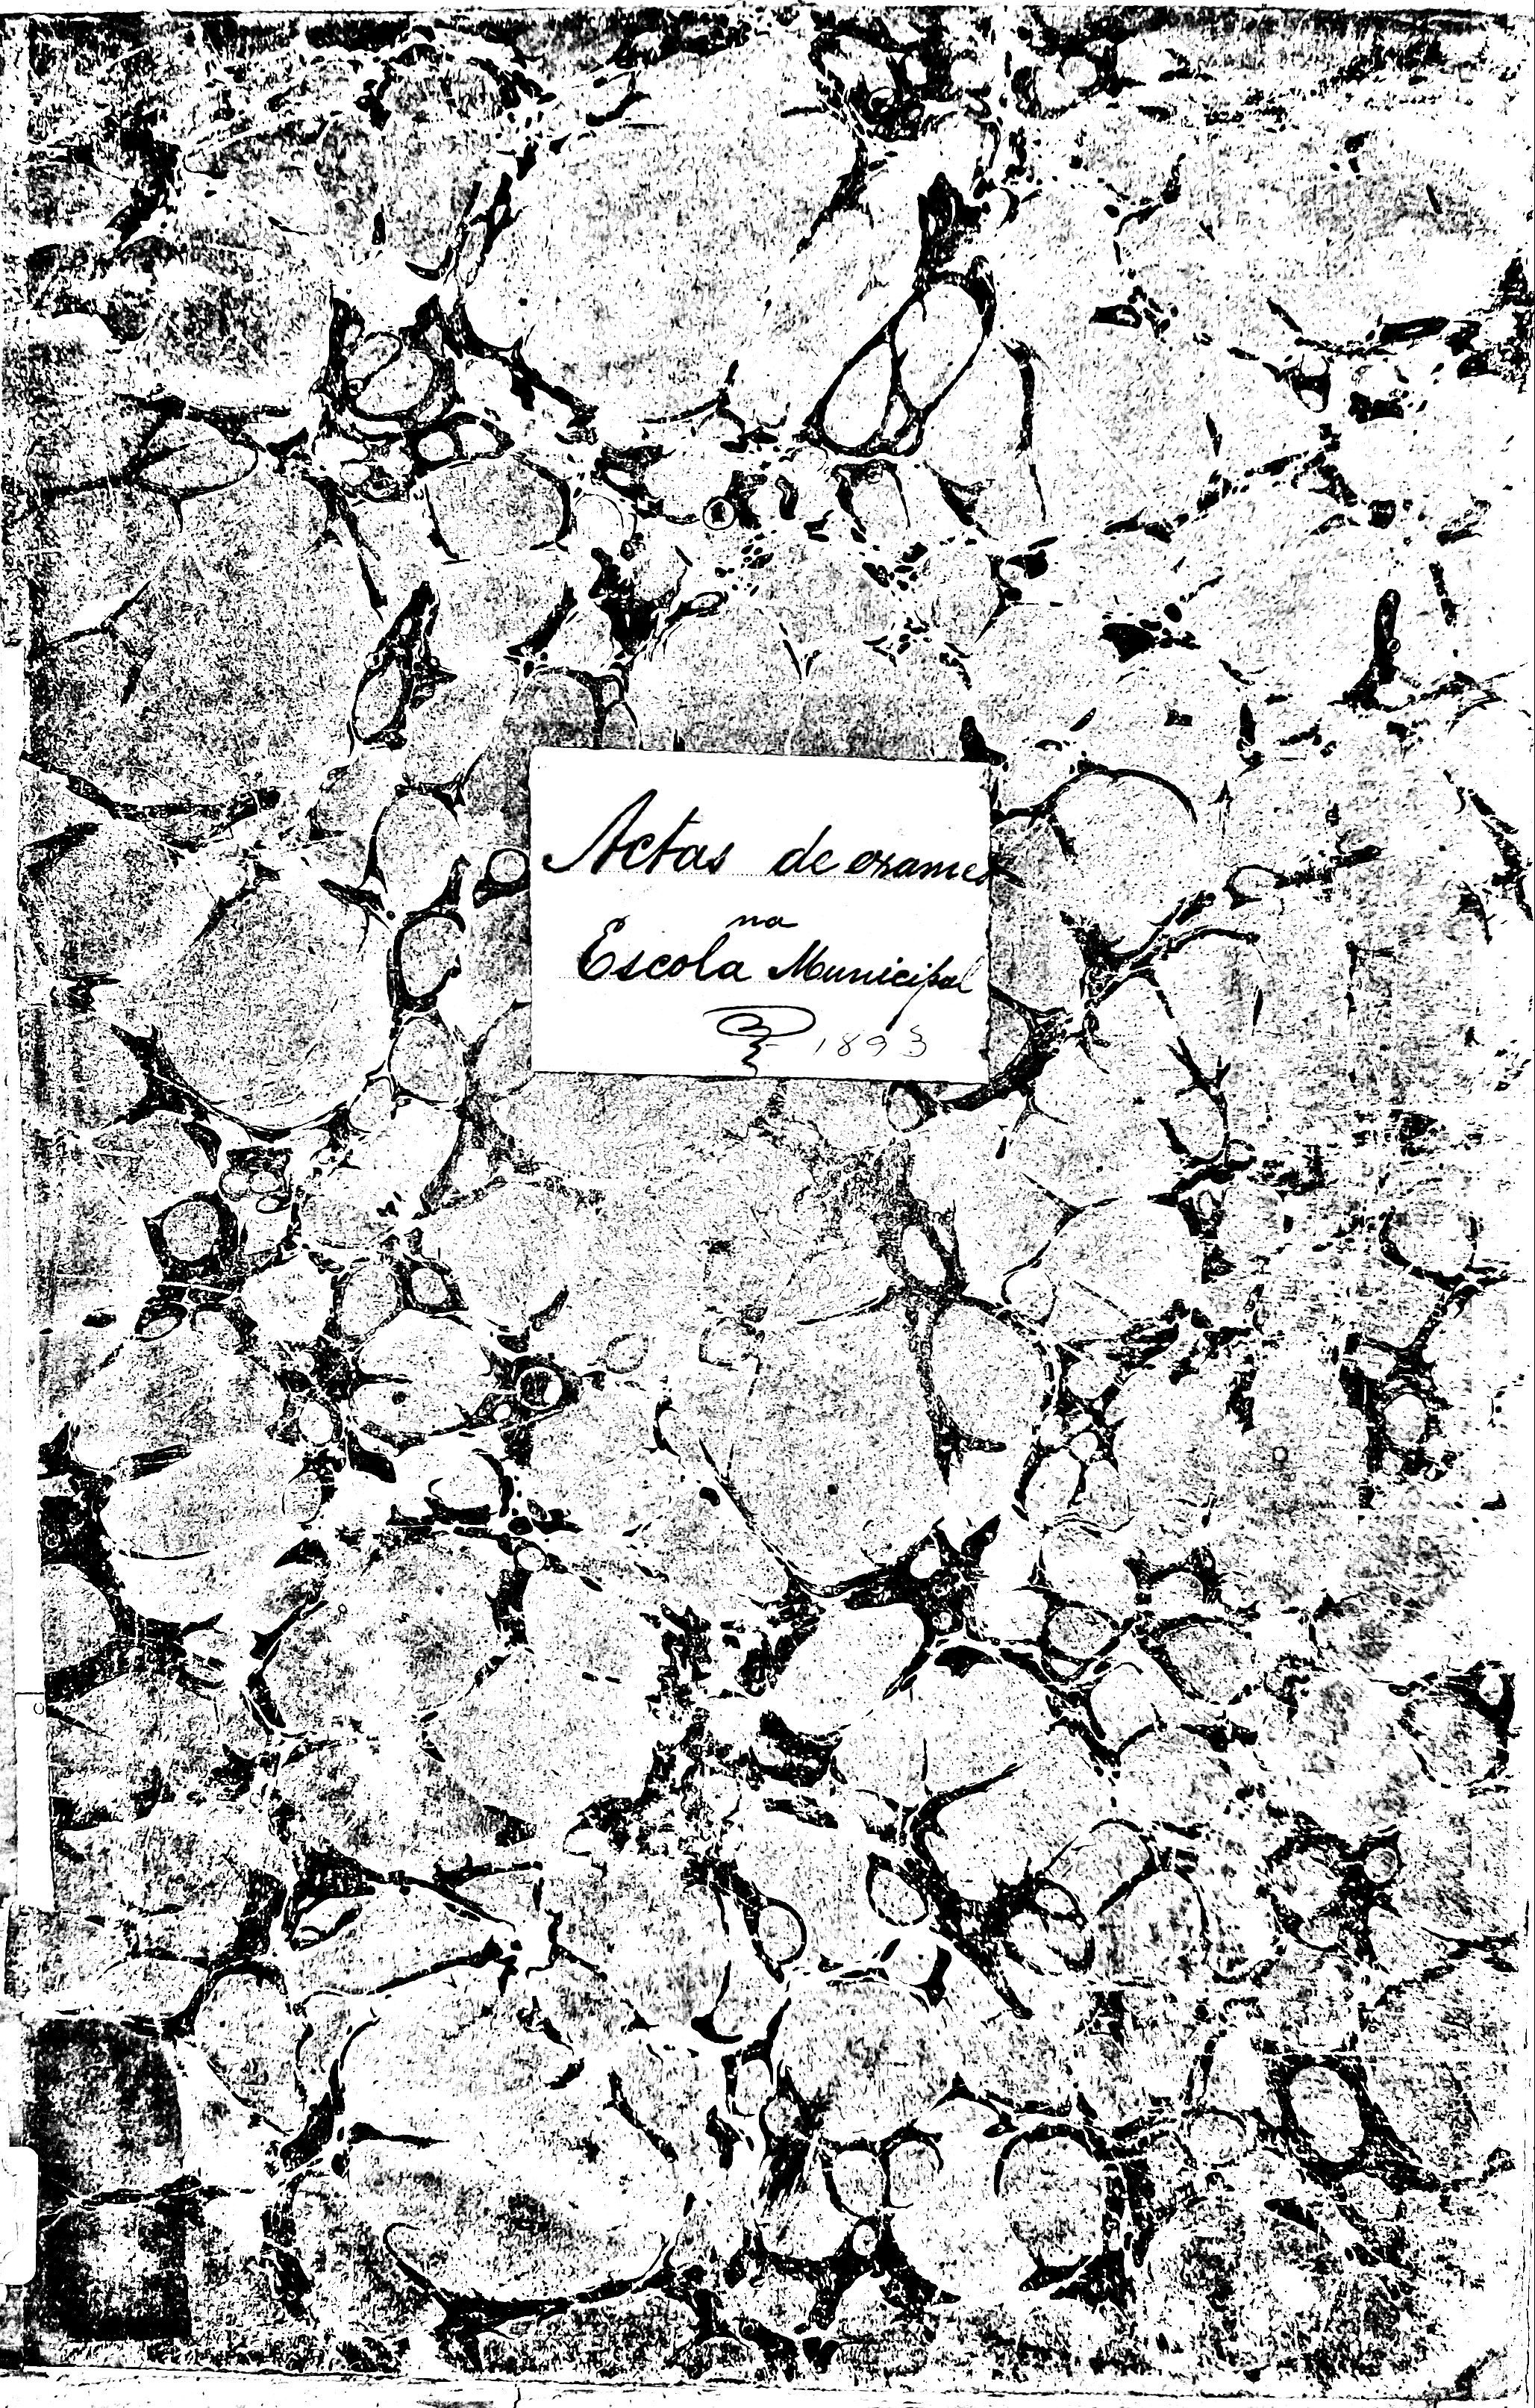 Actas de exames
na
Escola Municipal
1893